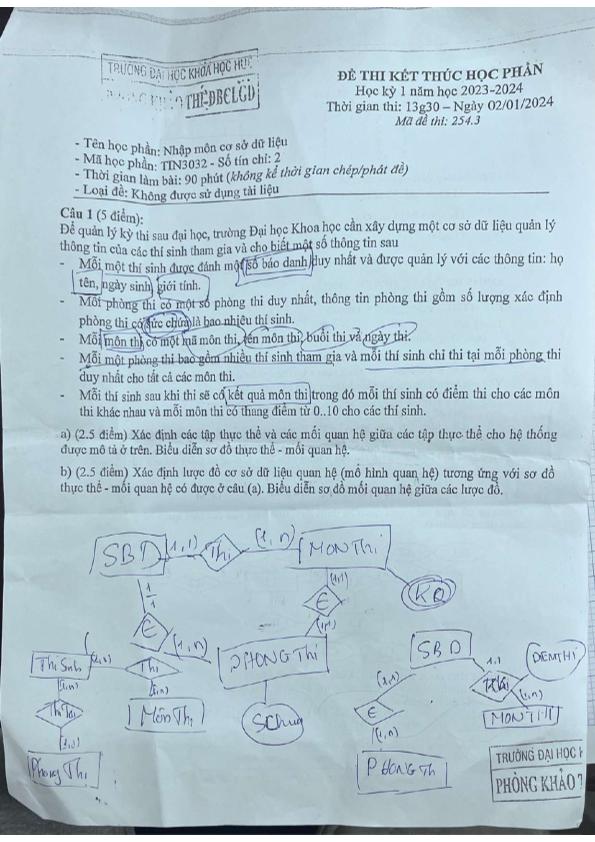 TRƯỜNG ĐẠI HỌC KHOA HỌC HUẾ
THÍ-ĐBCLGD
ĐỀ THI KẾT THÚC HỌC PHẦN
Học kỳ 1 năm học 2023-2024
Thời gian thi: 13g30 – Ngày 02/01/2024
Mã đề thi: 254.3
- Tên học phần: Nhập môn cơ sở dữ liệu
- Mã học phần: TIN3032 - Số tín chỉ: 2
- Thời gian làm bài: 90 phút (không kể thời gian chép/phát đề)
- Loại đề: Không được sử dụng tài liệu
Câu 1 (5 điểm):
Để quản lý kỳ thi sau đại học, trường Đại học Khoa học cần xây dựng một cơ sở dữ liệu quản lý
thông tin của các thí sinh tham gia và cho biết một số thông tin sau
- Mỗi một thí sinh được đánh một số báo danh duy nhất và được quản lý với các thông tin: họ
tên, ngày sinh, giới tính.
- Mỗi phòng thi có một số phòng thi duy nhất, thông tin phòng thi gồm số lượng xác định
phòng thi có sức chứa là bao nhiêu thí sinh.
- Mỗi môn thi có một mã môn thi, tên môn thi, buổi thi và ngày thi.
- Mỗi một phòng thi bao gồm nhiều thí sinh tham gia và mỗi thí sinh chỉ thi tại mỗi phòng thi
duy nhất cho tất cả các môn thi.
- Mỗi thí sinh sau khi thi sẽ có kết quả môn thi trong đó mỗi thí sinh có điểm thi cho các môn
thi khác nhau và mỗi môn thi có thang điểm từ 0..10 cho các thí sinh.
a) (2.5 điểm) Xác định các tập thực thể và các mối quan hệ giữa các tập thực thể cho hệ thống
được mô tả ở trên. Biểu diễn sơ đồ thực thể - mối quan hệ.
b) (2.5 điểm) Xác định lược đồ cơ sở dữ liệu quan hệ (mô hình quan hệ) tương ứng với sơ đồ
thực thể - mối quan hệ có được ở câu (a). Biểu diễn sơ đồ mối quan hệ giữa các lược đồ.
SBD (1,1) Thi (1,n) MON Thi
(1,1)
KQ
€
(1,1)
€ (1,n) PHONG Thi
SBD
ĐIEMTHI
Thi Sinh (1,n) Thi
(1,n) (1,n)
(1,1) 1,1
(1,n)
€
Môn Thi
MONTHI
(1,n)
Phòng Thi
PHONG Th
TRƯỜNG ĐẠI HỌC
PHÒNG KHẢO